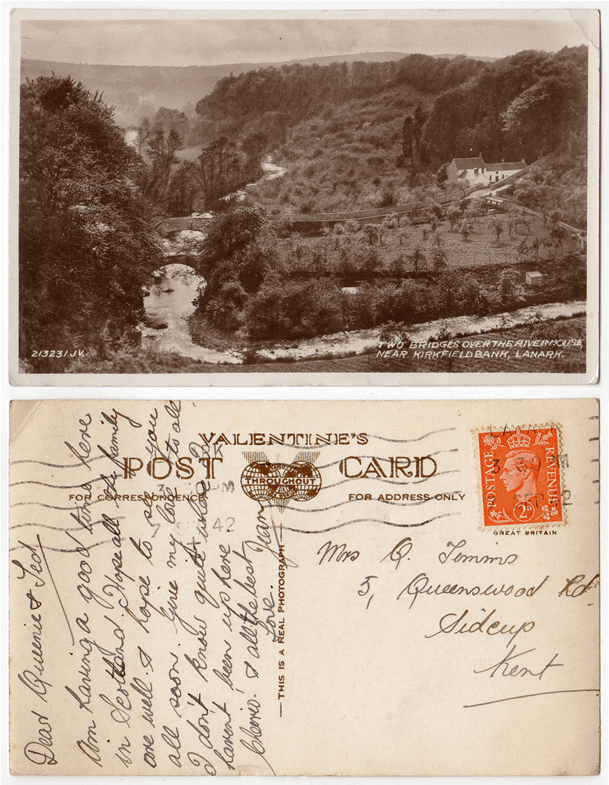 213231 J.V.
TWO BRIDGES OVER THE RIVER MOUSE
NEAR KIRKFIELDBANK, LANARK.
VALENTINE'S
POST CARD
THROUGHOUT
FOR CORRESPONDENCE
FOR ADDRESS ONLY
THIS IS A REAL PHOTOGRAPH
POSTAGE
REVENUE
2D
GREAT BRITAIN
42
Dear Queenie & Ted
Am having a good time here
in Scotland. Hope all the family
are well & hope to see you
all soon. Give my love to all
I don't know quite when
haven't been up here
Cheerio & all the best
Love. Jean
Mrs Q. Timms
5, Queenswood Rd
Sidcup
Kent